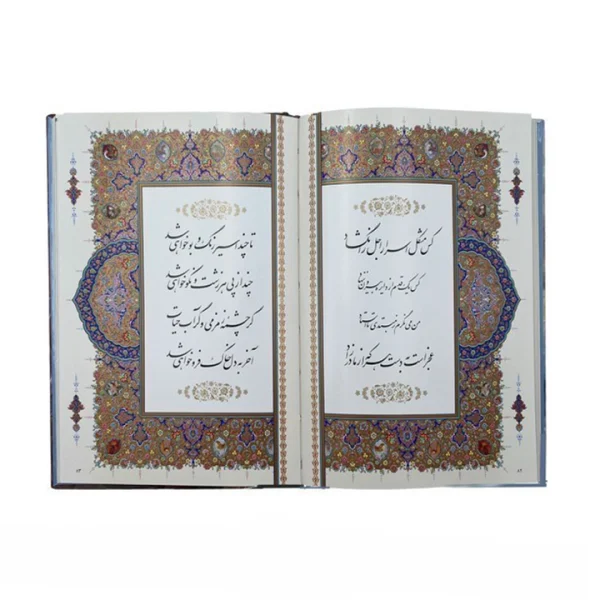 کس مشکل اسرار اجل را نگشاد
کس یک قدم از دایره بیرون ننهاد
من می نگرم ز مبتدی تا استاد
عجز است به دست هر که از مادر زاد
۸۲
تا چند اسیر رنگ و بو خواهی شد
چند از پی هر زشت و نکو خواهی شد
گر چشمه زمزمی و گر آب حیات
آخر به دل خاک فرو خواهی شد
۸۳